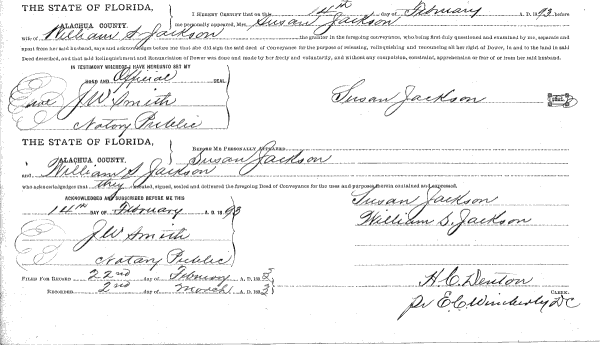 THE STATE OF FLORIDA,
ALACHUA COUNTY.
I HEREBY CERTIFY that on this 14th day of February A. D. 1893, before
me personally appeared, Mrs. Susan Jackson
Wife of William S. Jackson the grantor in the foregoing conveyance, who being first duly questioned and examined by me, separate and
apart from her said husband, says and acknowledges before me that she did sign the said deed of Conveyance for the purpose of releasing, relinquishing and renouncing all her right of Dower, in and to the land in said
Deed described, and that said Relinquishment and Renunciation of Dower was done and made by her freely and voluntarily, and without any compulsion, constraint, apprehension or fear of or from her said husband.
IN TESTIMONY WHEREOF I HAVE HEREUNTO SET MY
HAND AND Official SEAL
J W Smith
Notary Public
Susan Jackson SEAL
THE STATE OF FLORIDA,
ALACHUA COUNTY,
BEFORE ME PERSONALLY APPEARED
Susan Jackson
and William S. Jackson
who acknowledges that they executed, signed, sealed and delivered the foregoing Deed of Conveyance for the uses and purposes therein contained and expressed.
ACKNOWLEDGED AND SUBSCRIBED BEFORE ME THIS
14th DAY OF February A. D. 1893
J W Smith
Notary Public
Susan Jackson
William S. Jackson
FILED FOR RECORD 22nd day of February A. D. 1893
RECORDED 2nd day of March A. D. 1893
H. C. Denton
CLERK.
pr E. C. Wimberly DC